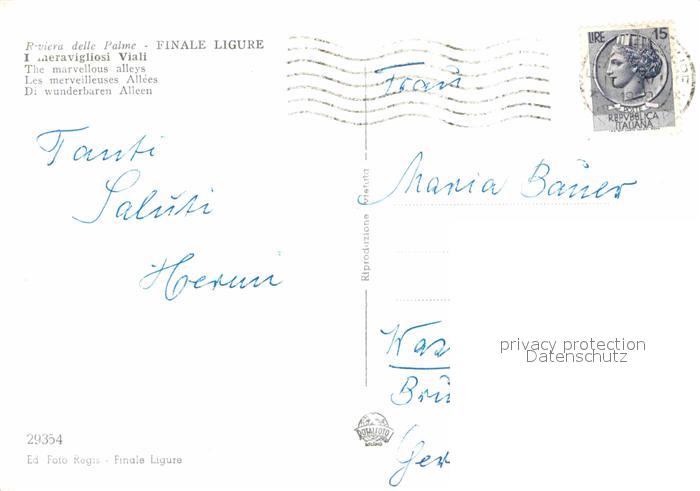 Riviera delle Palme - FINALE LIGURE
I meravigliosi Viali
The marvellous alleys
Les merveilleuses Allées
Di wunderbaren Alleen
LIRE 15
REPVBBLICA
ITALIANA
Frau
Tanti
Saluti
Maria Bauer
Riproduzione vietata
privacy protection
Datenschutz
Brü
Ger
ROTALFOTO
MILANO
29354
Ed Foto Regis - Finale Ligure